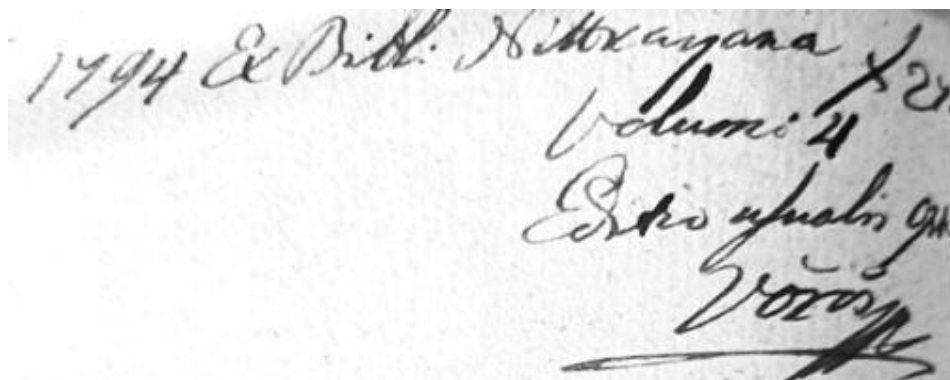 1794 Ex Bibl. Nittrayana
Volumi 4
Editio usualis
Vörös